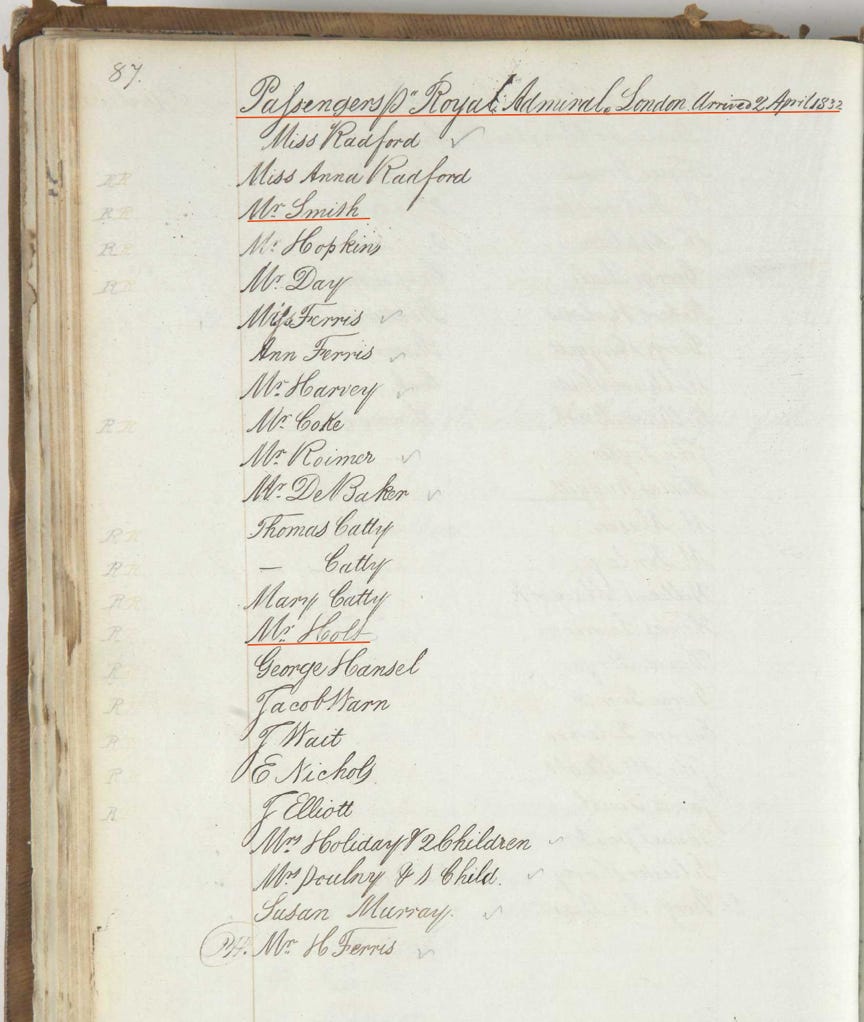 87.
Passengers p "Royal Admiral" London. Arrived 2 April 1832
Miss Radford
Miss Anna Radford
Mr. Smith
Mr. Hopkins
Mr. Day
Ferris
Ann Ferris
Mr. Harvey
Mr. Coke
Mr. Roimer
Mr. De Baker
Thomas Catty
— Catty
Mary Catty
Mr. Holt
George Hansel
Jacob Warn
J Wait
E Nichols
J Elliott
Mrs Holiday & 2 Children
Mrs & 1 Child.
Susan Murray.
Mr. H Ferris